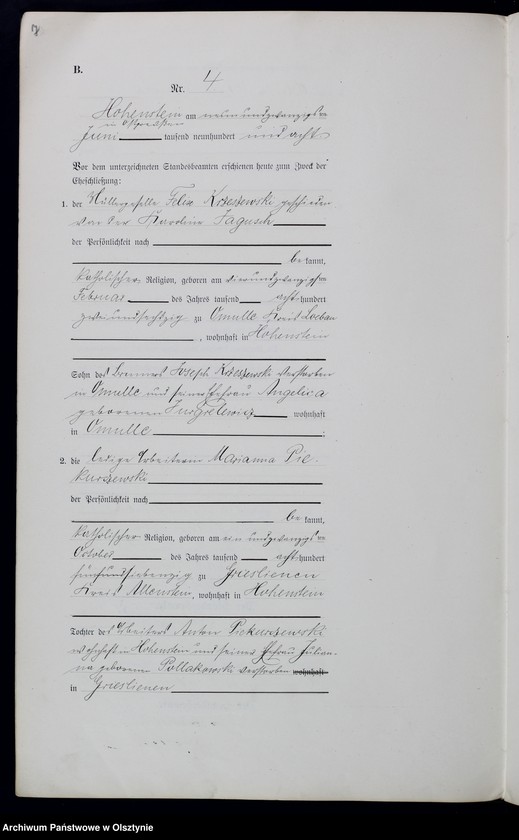 B.
Nr. 4
Hohenstein am neunundzwanzigsten
in Ostpreußen
Juni tausend neunhundert und acht
Vor dem unterzeichneten Standesbeamten erschienen heute zum Zweck der
Eheschließung:
1. der Müllergeselle Felix Krzeszewski geschieden
von der Karoline Jagusch
der Persönlichkeit nach
be kannt,
katholischer Religion, geboren am vierundzwanzigsten
Februar des Jahres tausend acht hundert
zweiundsechzig zu Omulle Kreis Loebau
, wohnhaft in Hohenstein
Sohn des Brenners Joseph Krzeszewski verstorben
in Omulle und seiner Ehefrau Angelica
geborenen wohnhaft
in Omulle ;
2. die ledige Arbeiterin Marianna Pie-
kurszewski
der Persönlichkeit nach
be kannt,
katholischer Religion, geboren am einundzwanzigsten
October des Jahres tausend acht hundert
fünfundsiebenzig zu Grieslienen
Kreis Allenstein, wohnhaft in Hohenstein
Tochter des Arbeiters Anton Piekurszewski
wohnhaft in Hohenstein und seiner Ehefrau Julian-
na geborenen Pollakowski verstorben wohnhaft
in Grieslienen
Archiwum Państwowe w Olsztynie